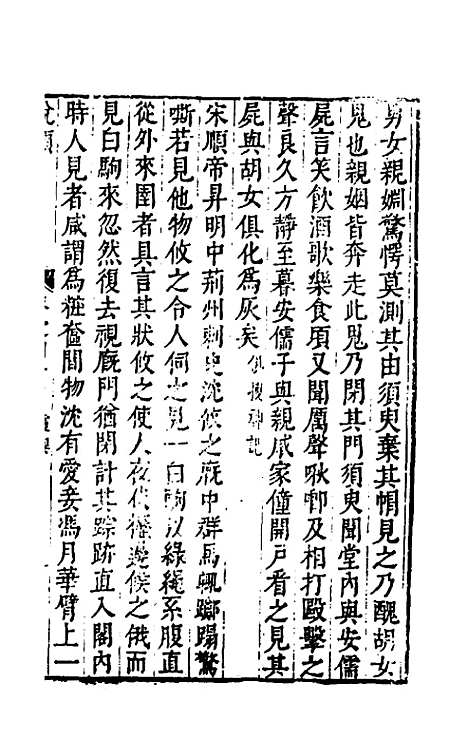 男女親姻驚愕莫測其由須臾棄其帽見之乃醜胡女
鬼也親姻皆奔走此鬼乃閉其門須臾聞堂內與安儒
屍言笑飲酒歌樂食頃又聞厲聲啾唧及相打毆擊之
聲良久方靜至暮安儒子與親戚家僮開戶看之見其
屍與胡女俱化為灰矣 搜神記
宋順帝昇明中荊州刺史沈攸之廄中群馬輒躑躅驚
嘶若見他物攸之令人伺之見一白駒以綠繩系腹直
從外來圉者具言其狀攸之使人夜伏櫪邊候之俄而
見白駒來忽然復去視廄門猶閉計其踪跡直入閣內
時人見者咸謂為粧奩間物沈有愛妾馮月華臂上一
說頤